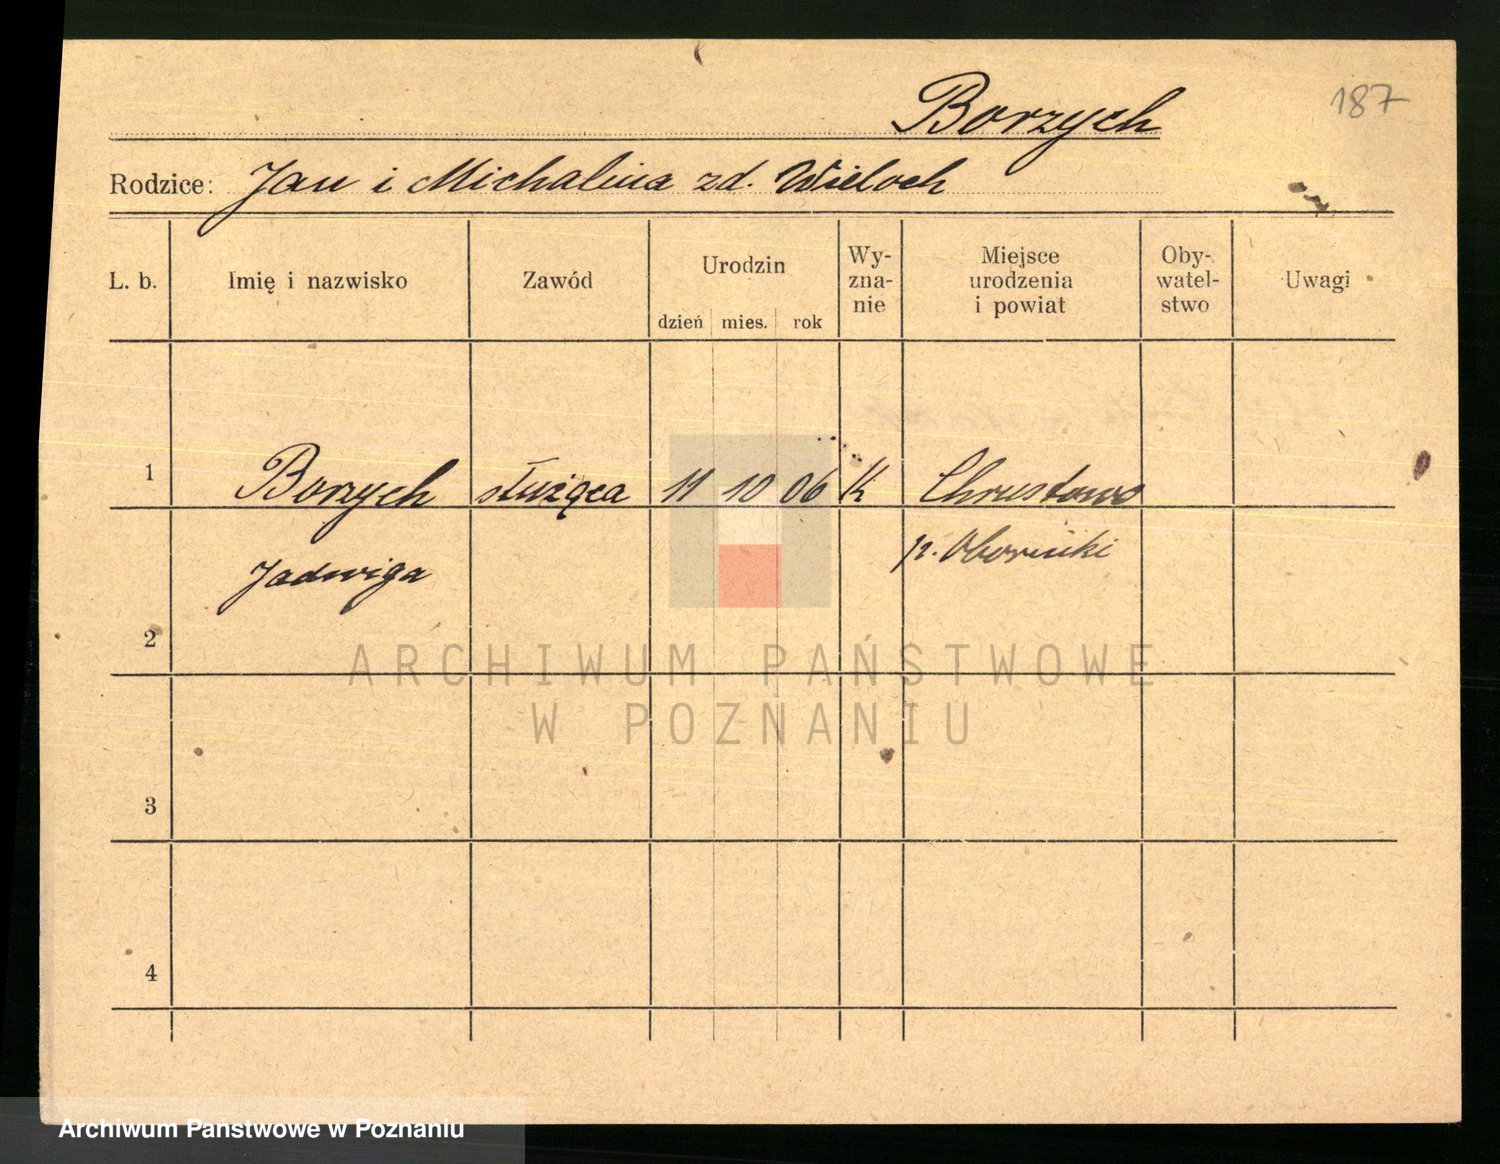 Borzych
187
Rodzice: Jan i Michalina zd. Wieloch
L. b. Imię i nazwisko Zawód Urodzin dzień mies. rok Wy-zna-nie Miejsce urodzenia i powiat Oby-watel-stwo Uwagi
1 Borzych służąca 11 10 06 K Chrustowo
Jadwiga p. Oborniki
2
3
4
ARCHIWUM PAŃSTWOWE
W POZNANIU
Archiwum Państwowe w Poznaniu